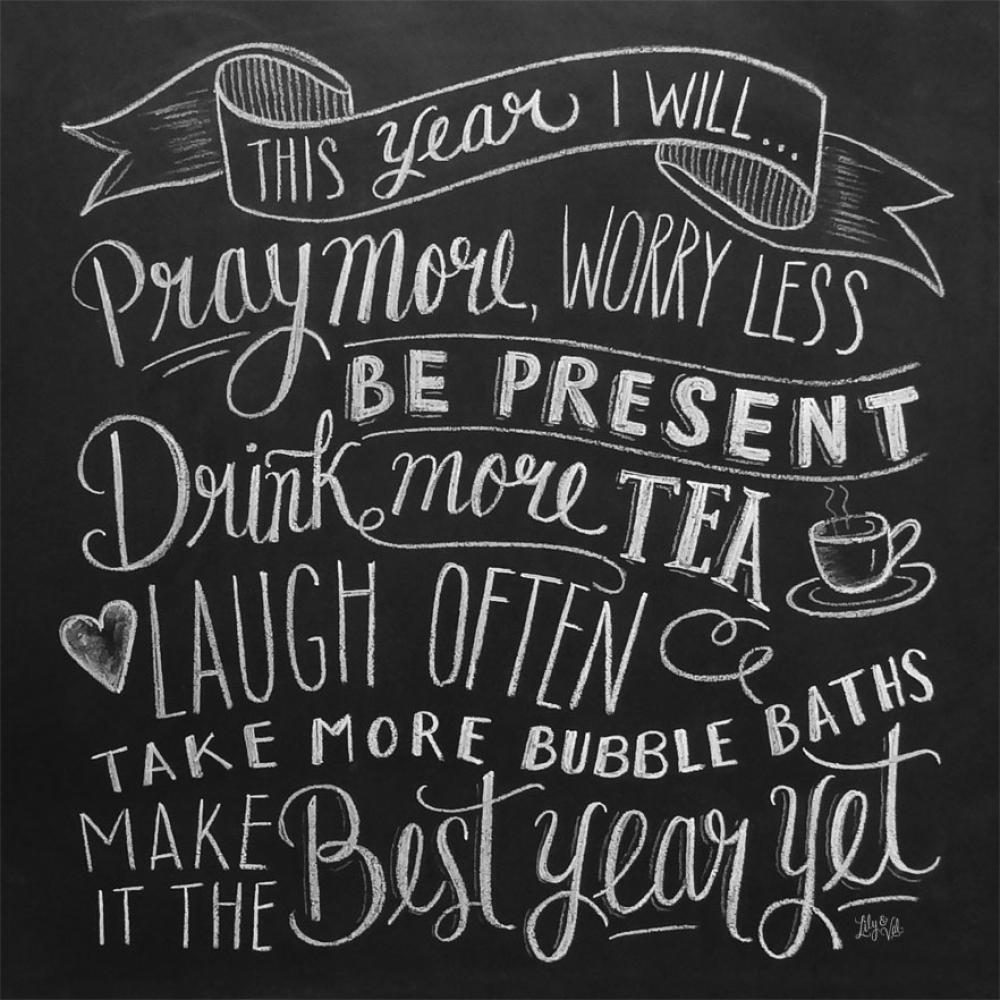 THIS year I WILL...
Pray more, WORRY LESS
BE PRESENT
Drink more TEA
LAUGH OFTEN
TAKE MORE BUBBLE BATHS
MAKE
IT THE Best year yet
Lily & Val